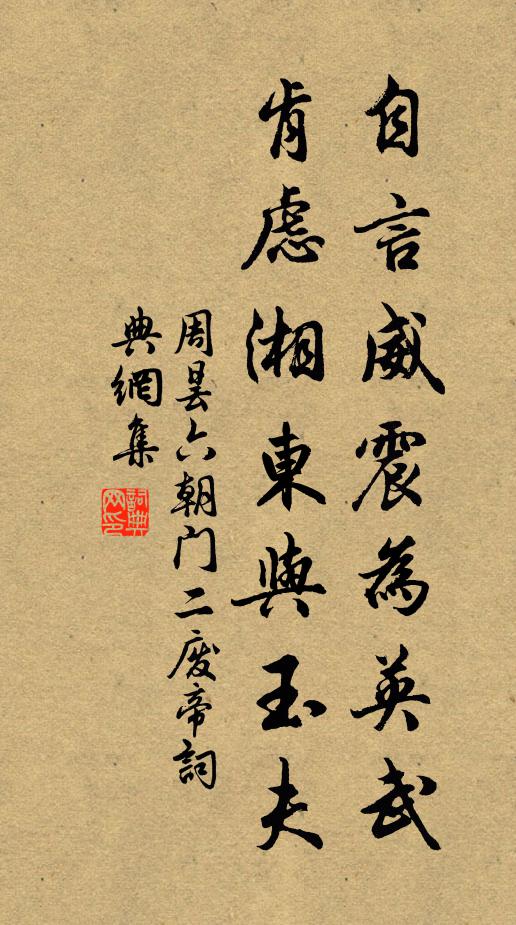 自言威震為英武
肯慮湘東與玉夫
周曇六朝門二廢帝詞
典網集
詞典网印